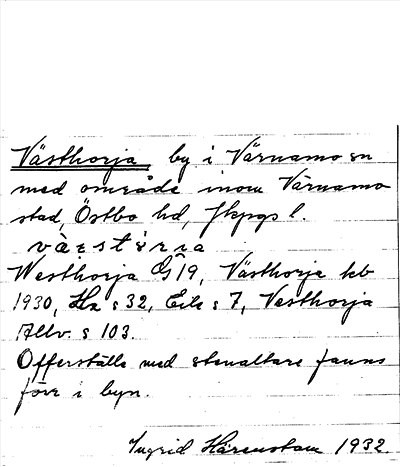 Västhorja by i Värnamo sn
med område inom Värnamo
stad, Östbo hd, Jkpgs l.
Westhorja G 19, Västhorja kb
1930, Hz s 32, Eik s 7, Vesthorja
Allv. s 103.
Offerställe med stenaltare fanns
förr i byn.
Ingrid Härenstam 1932.